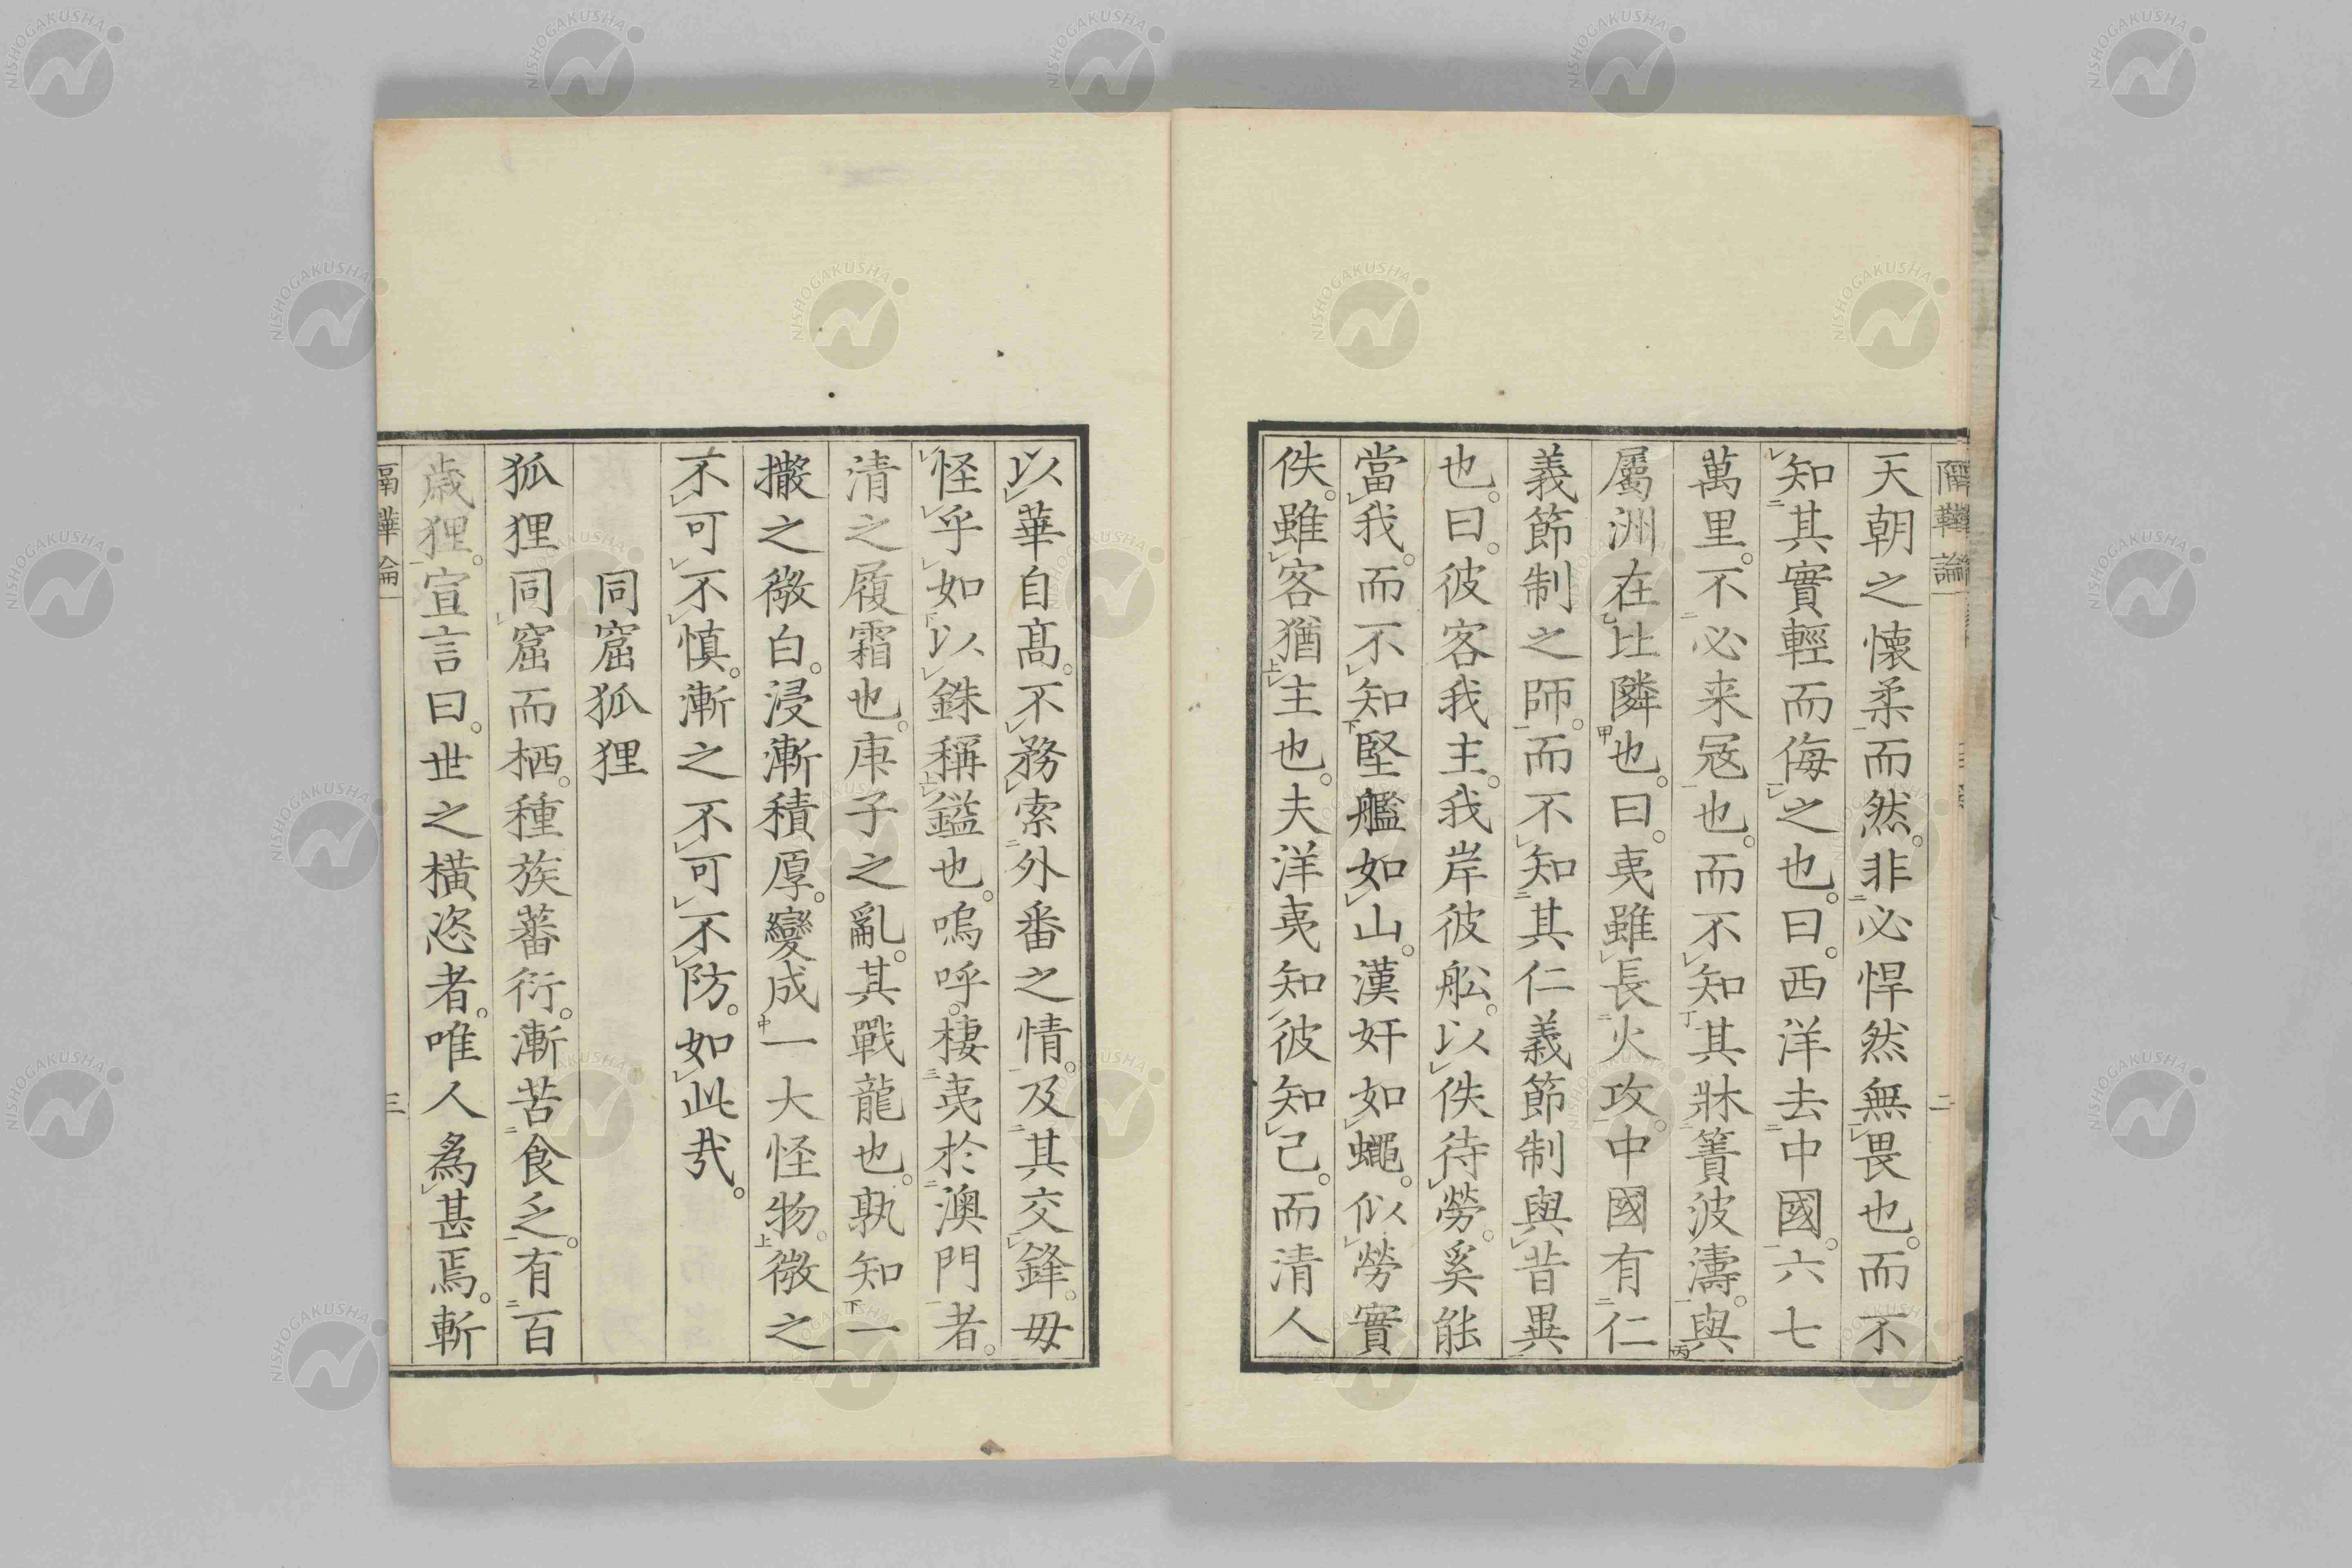 隔鞾論 二
天朝之懷柔而然。非必悍然無畏也。而不
知其實輕而侮之也。曰。西洋去中國。六七
萬里。不必来冦也。而不知其牀簀波濤。與
屬洲在比隣也。曰。夷雖長火攻。中國有仁
義節制之師。而不知其仁義節制與昔異
也。曰。彼客我主。我岸彼舩。以佚待勞。奚能
當我。而不知堅艦如山。漢奸如蠅。似勞實
佚。雖客猶主也。夫洋夷知彼知己。而清人
以華自高。不務索外番之情。及其交鋒。毋
怪乎如以銖稱鎰也。嗚呼。棲夷於澳門者。
清之履霜也。庚子之亂。其戰龍也。孰知一
撒之微白。浸漸積厚。變成一大怪物。微之
不可不慎。漸之不可不防。如此哉。
同窟狐狸
狐狸同窟而栖。種族蕃衍。漸苦食乏。有百
歳狸。宣言曰。世之橫恣者。唯人為甚焉。斬
隔鞾論 三
NISHOGAKUSHA